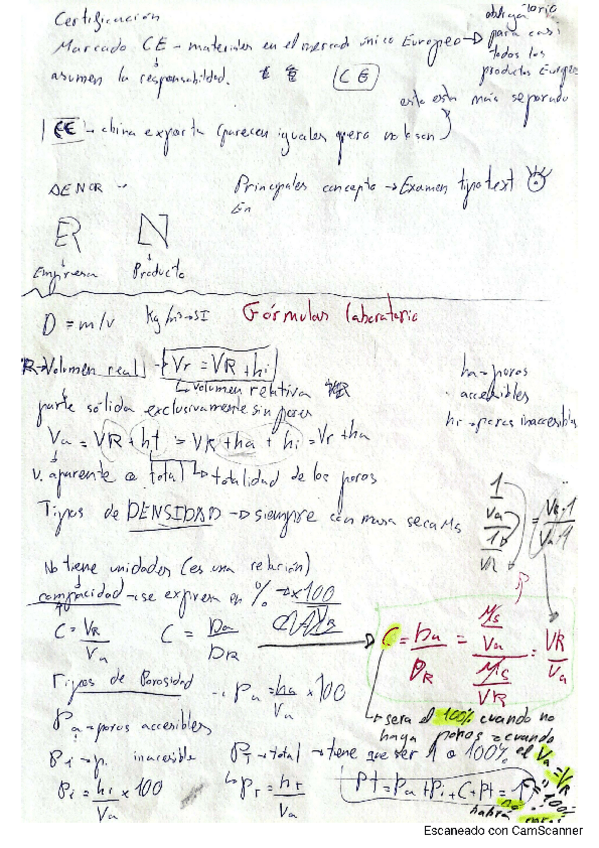 Certificación
Marcado CE → materiales en el mercado único Europeo → obligatorio para casi todos los productos Europeo
asumen la responsabilidad. CE
esta esta más separado
CE → china exporta (parecen iguales pero no lo son)
Principales concepto → Examen tipo test
En
R N
Empresa Producto
D = m/v kg/m³ → SI Fórmulas laboratorio
VR → Volumen real → Vr = VR + hi
volumen relativa
parte sólida exclusivamente sin poros
ha → poros accesibles
hi → poros inaccesibles
Va = VR + ht = VR + ha + hi = Vr + ha
v. aparente o total → totalidad de los poros
Tipos de DENSIDAD → siempre con masa seca Ms
1/Va / 1/VR = VR·1 / Va·1
No tiene unidades (es una relación)
compacidad → se expresa en % → x100
C = VR/Va C = Da/DR
C = Da/DR = Ms/Va / Ms/VR = VR/Va
Tipos de Porosidad Pa = ha/Va x 100
→ sera el 100% cuando no haya poros o cuando el Va = VR
Pa → poros accesibles
Pi → p. inaccesible PT → total → tiene que ser 1 o 100%
Pi = hi/Va x 100 PT = hT/Va
Pt = Pa + Pi
C + Pt = 1
100%
Escaneado con CamScanner